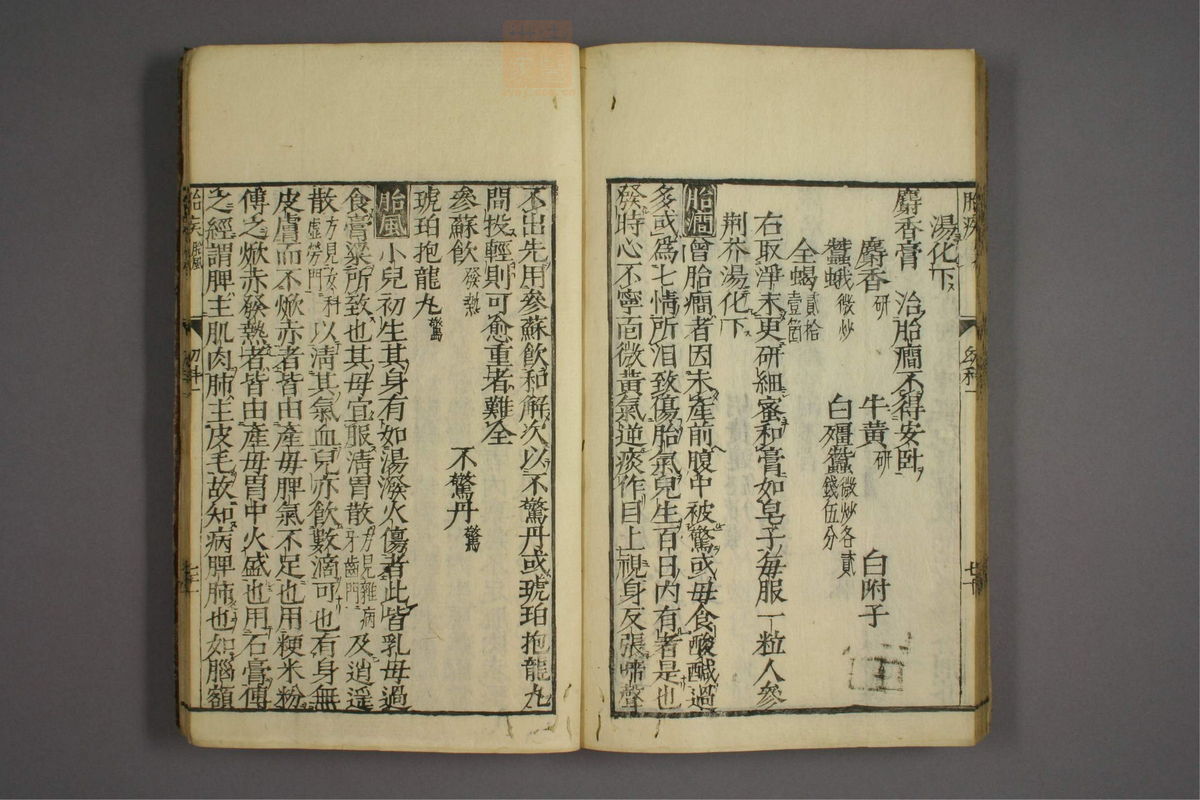 湯化下
麝香膏 治胎癇不得安臥
麝香研 牛黄研 白附子
蠶蛾微炒 白殭蠶微炒各貳錢伍分
全蝎貳拾壹箇
右取淨末更研細蜜和膏如皂子每服一粒人參
荆芥湯化下
胎癇 曾胎癇者因未產前腹中被驚或母食酸鹹過
多或爲七情所汨致傷胎氣兒生百日内有者是也
發時心不寧面微黄氣逆痰作目上視身反張啼聲
不出先用參蘇飲和解次以不驚丹或琥珀抱龍丸
間投輕則可愈重者難全
參蘇飲發熱 不驚丹驚
琥珀抱龍丸驚
胎風 小兒初生其身有如湯潑火傷者此皆乳母過
食膏粱所致也其母宜服清胃散方見雜病牙齒門及逍遥
散方見女科虛勞門以清其氣血兒亦飲數滴可也有身無
皮膚而不焮赤者皆由產母脾氣不足也用粳米粉
傅之焮赤發熱者皆由產母胃中火盛也用石膏傅
之經謂脾主肌肉肺主皮毛故知病脾肺也如腦額
胎疾 胎風
幼科